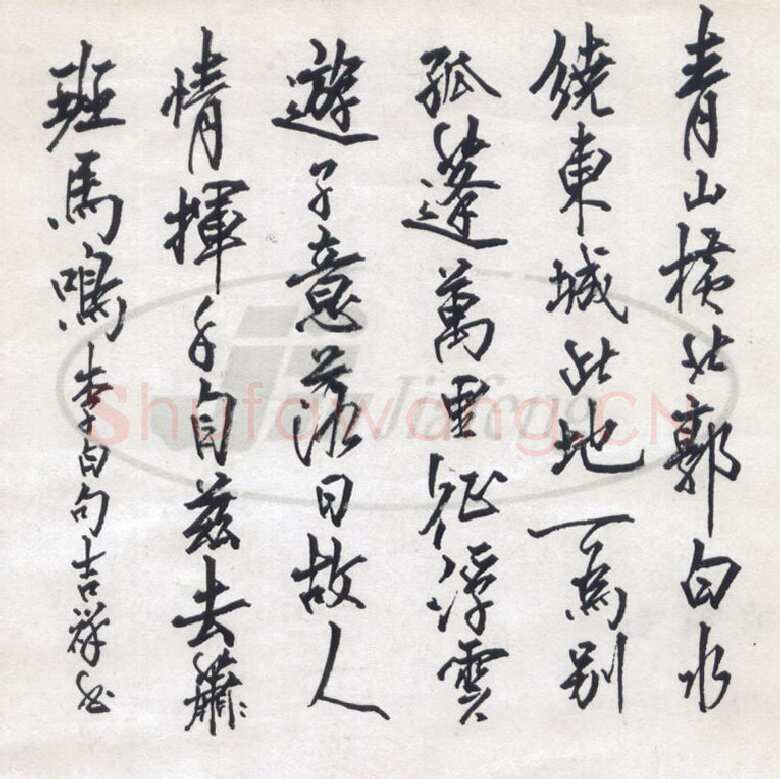 青山橫北郭白水
繞東城此地一為別
孤蓬萬里征浮雲
遊子意落日故人
情揮手自茲去蕭〻
班馬鳴 李白句吉祥書
Shufawang.CN